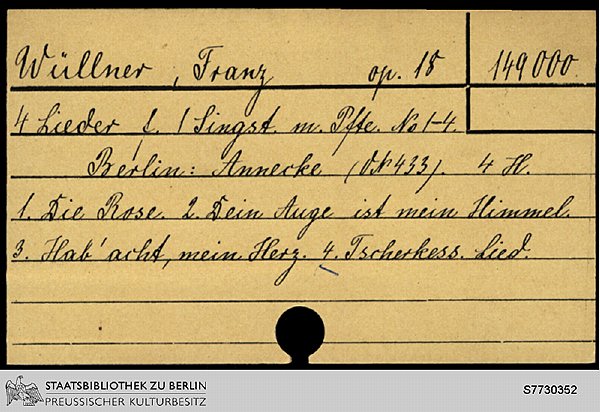 Wüllner, Franz op. 18 149000.
4 Lieder f. 1 Singst. m. Pfte. No 1-4.
Berlin: Annecke (VN 433). 4 H.
1. Die Rose. 2. Dein Auge ist mein Himmel.
3. Hab' acht, mein Herz. 4. Tscherkess. Lied.
STAATSBIBLIOTHEK ZU BERLIN
PREUSSISCHER KULTURBESITZ
S7730352